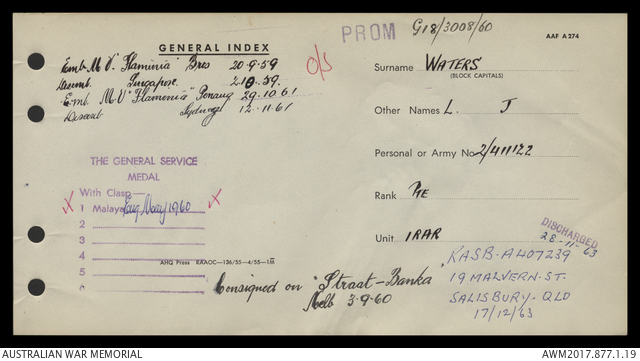 PROM G18/3008/60
AAF A274
GENERAL INDEX
Emb. M V "Flaminia" Bres 20-9-59
Disemb. Singapore. 2 10 59.
Emb. M.V "Flamenia" Penang 29.10.61
Disemb. Sydney 12-11-61
O/S
Surname WATERS
(BLOCK CAPITALS)
Other Names L. J
Personal or Army No 2/411122
Rank PTE
Unit 1RAR
DISCHARGED
28-11-63
THE GENERAL SERVICE
MEDAL
With Clasp—
X 1 Malaya 1960 X
2
3
4
5
6
AHQ Press EAAOC—136/55—4/55—1M
Consigned on "Straat-Banka"
Melb 3-9-60
RASB-A407239
19 MALVERN-ST.
SALISBURY-QLD
17/12/63
AUSTRALIAN WAR MEMORIAL
AWM2017.877.1.19